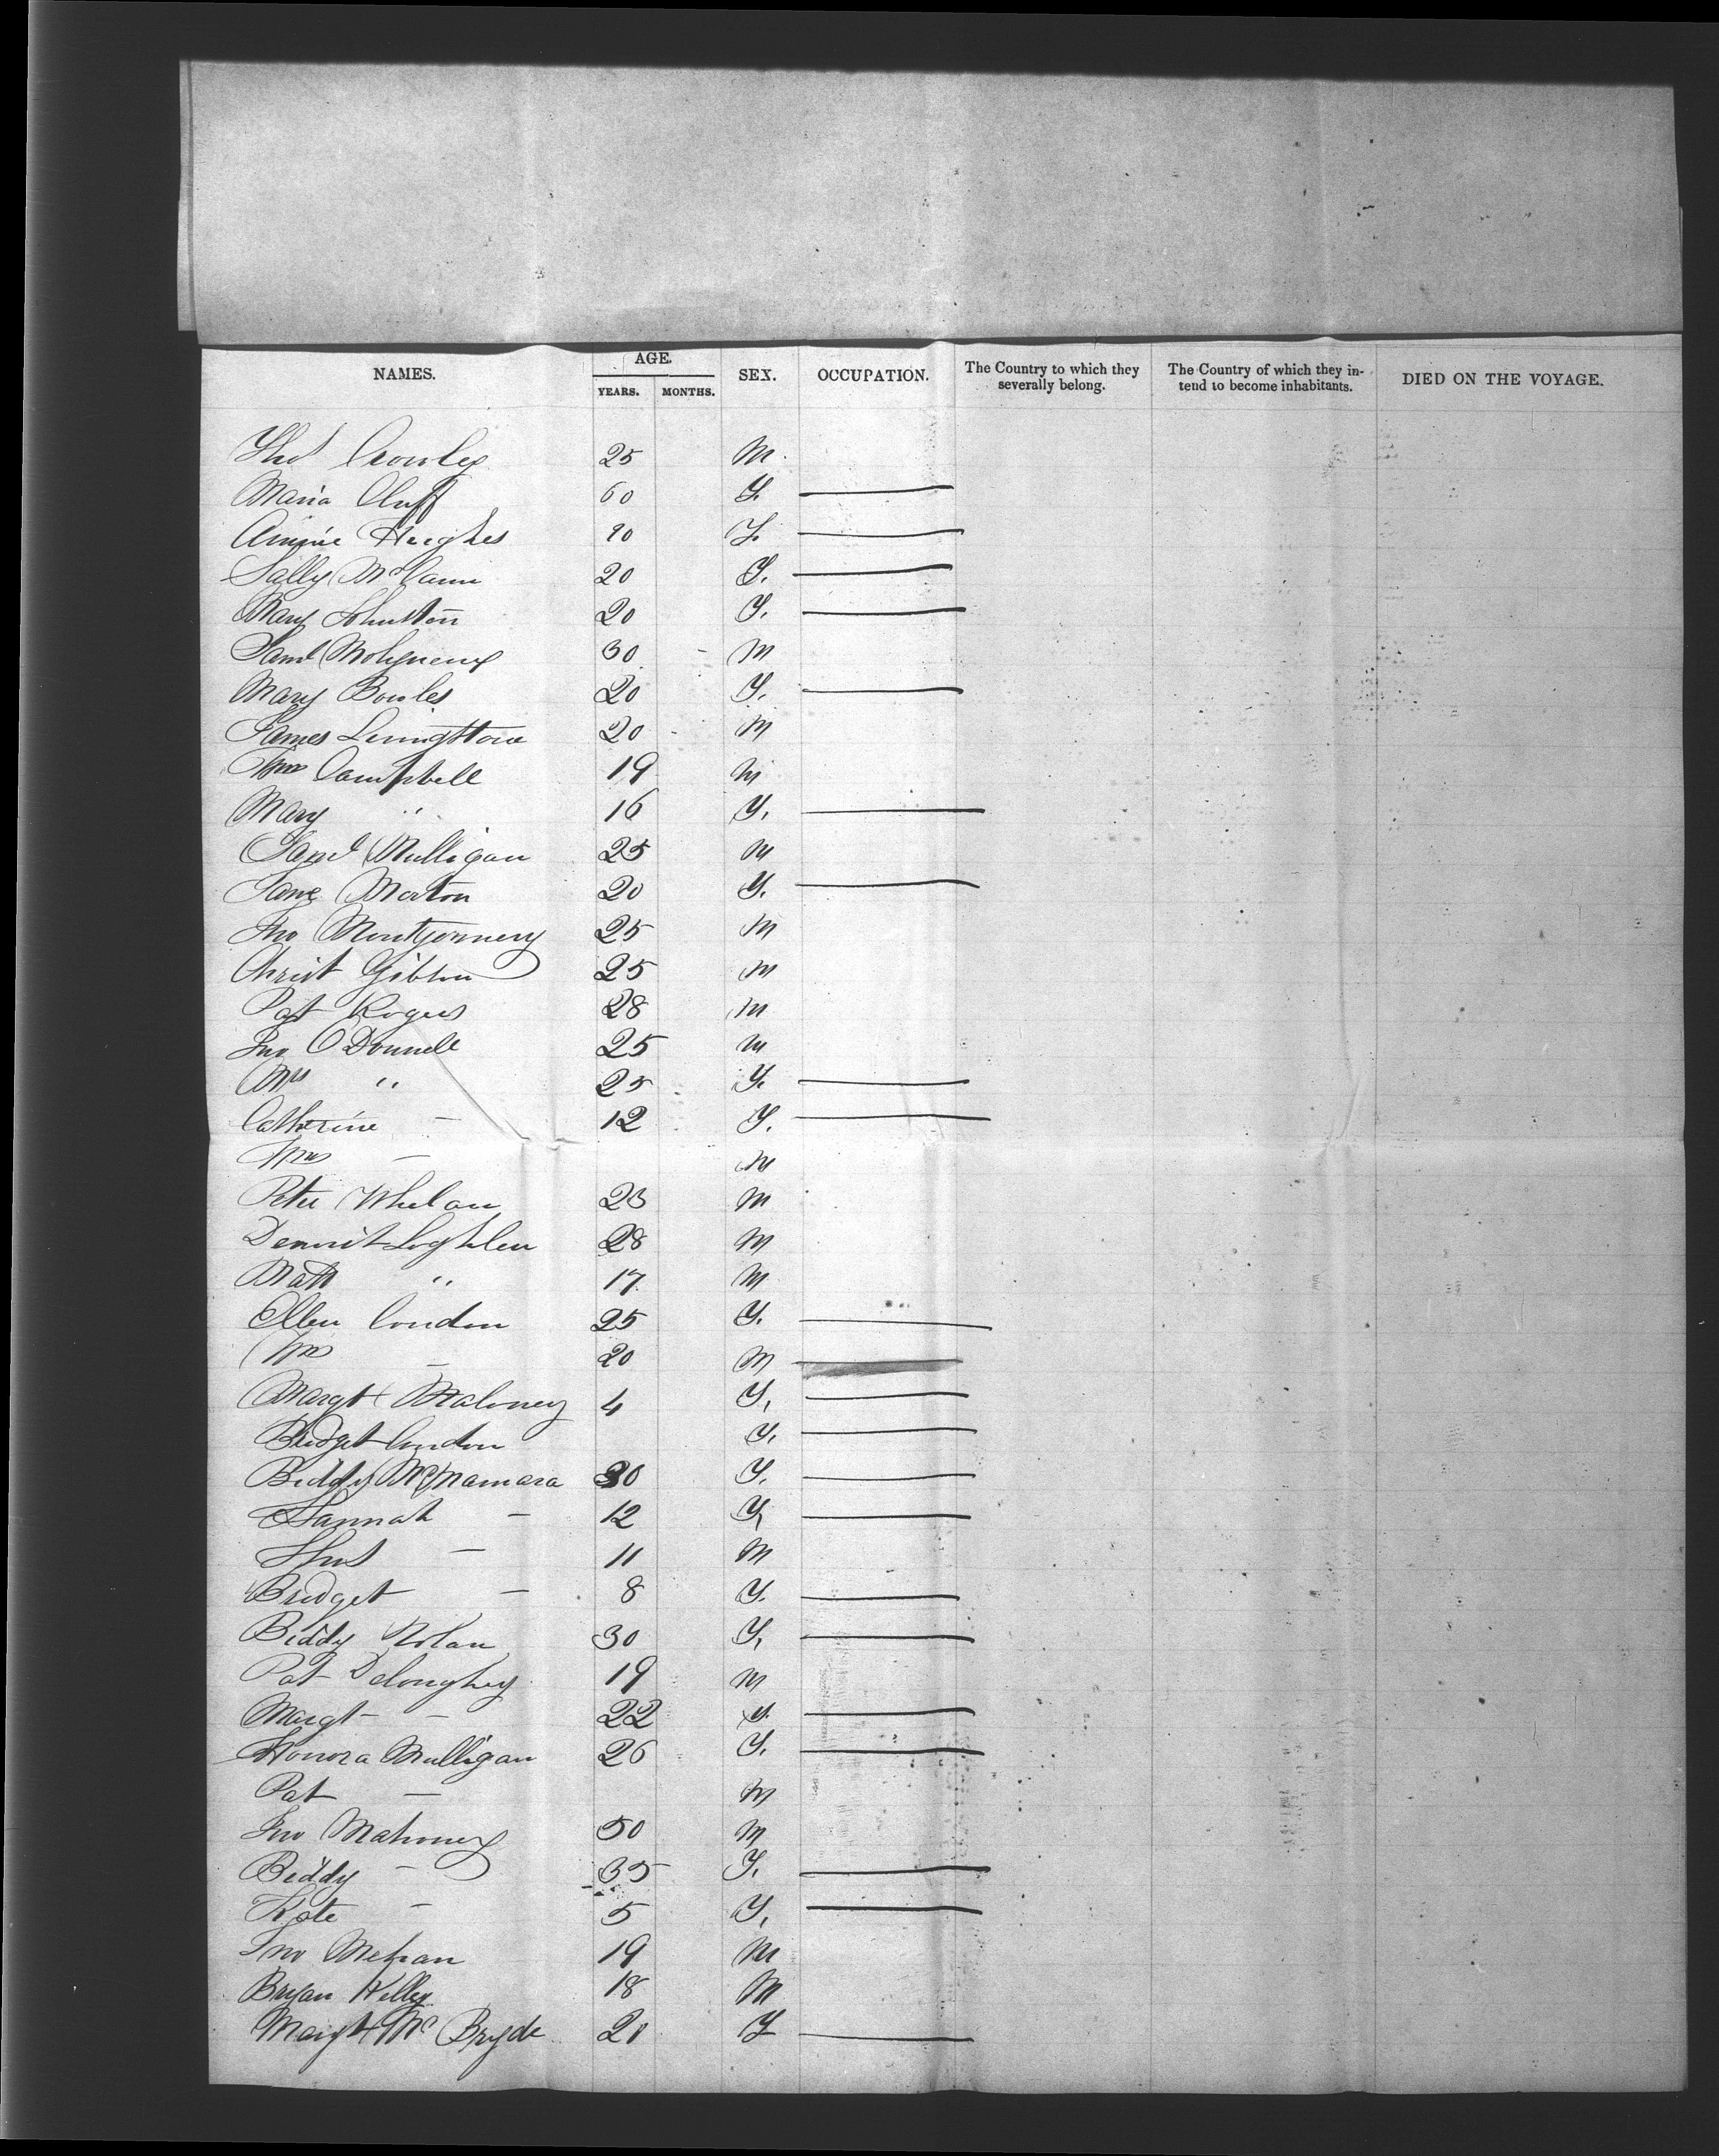 NAMES. AGE. SEX. OCCUPATION. The Country to which they severally belong. The Country of which they intend to become inhabitants. DIED ON THE VOYAGE.
YEARS. MONTHS.
Thos Crowley 25 M
Maria Cluff 60 F. —
Annie Hughes 90 F. —
Sally McCann 20 F. —
Mary Johnston 20 F. —
Saml Molyneux 30 M
Mary Bowles 20 F. —
James Livingstone 20 M
Wm Campbell 19 M
Mary " 16 F. —
Saml Mulligan 25 M
Jane Morton 20 F. —
Jno Montgomery 25 M
Christ Gibson 25 M
Pat Rogers 28 M
Jno O'Donnell 25 M
Mrs " 25 F. —
Catherine — 12 F. —
Wm — M
Peter Whelan 23 M
Dermit Loghlen 28 M
Matt " 17 M
Ellen Condon 25 F. —
Wm — 20 M —
Margt Maloney 4 F. —
Bridget Condon F. —
Biddy McNamara 30 F. —
Hannah — 12 F. —
Thos — 11 M
Bridget — 8 F. —
Biddy Nolan 30 F. —
Pat Deloughey 19 M
Margt — 22 F. —
Honora Mulligan 26 F. —
Pat — M
Jno Mahoney 50 M
Biddy — 35 F. —
Kate — 5 F. —
Jno Mehan 19 M
Bryan Kelley 18 M
Margt McBryde 20 F —